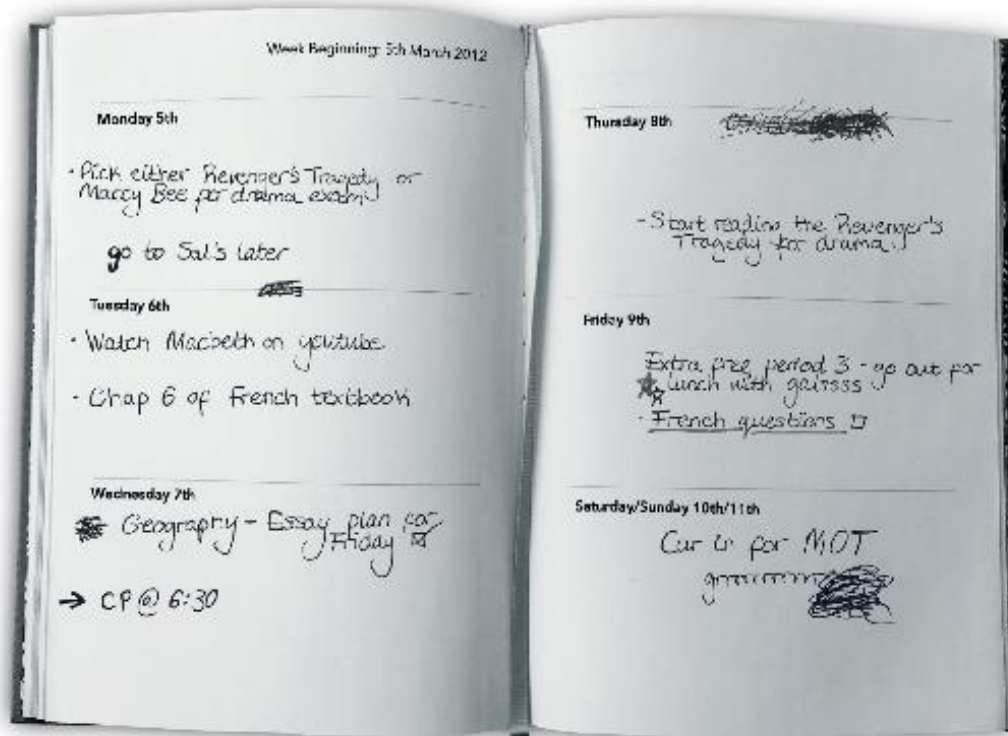 Week Beginning: 5th March 2012
Monday 5th
· Pick either Revenger's Tragedy or
Marcy Bee for drama exam!
go to Sal's later
Tuesday 6th
· Watch Macbeth on youtube
· Chap 6 of French textbook
Wednesday 7th
Geography - Essay plan for
Friday
→ CP @ 6:30
Thursday 8th
- Start reading the Revenger's
Tragedy for drama
Friday 9th
Extra free period 3 - go out for
lunch with galssss
· French questions
Saturday/Sunday 10th/11th
Car in for MOT
grrrrrrrr